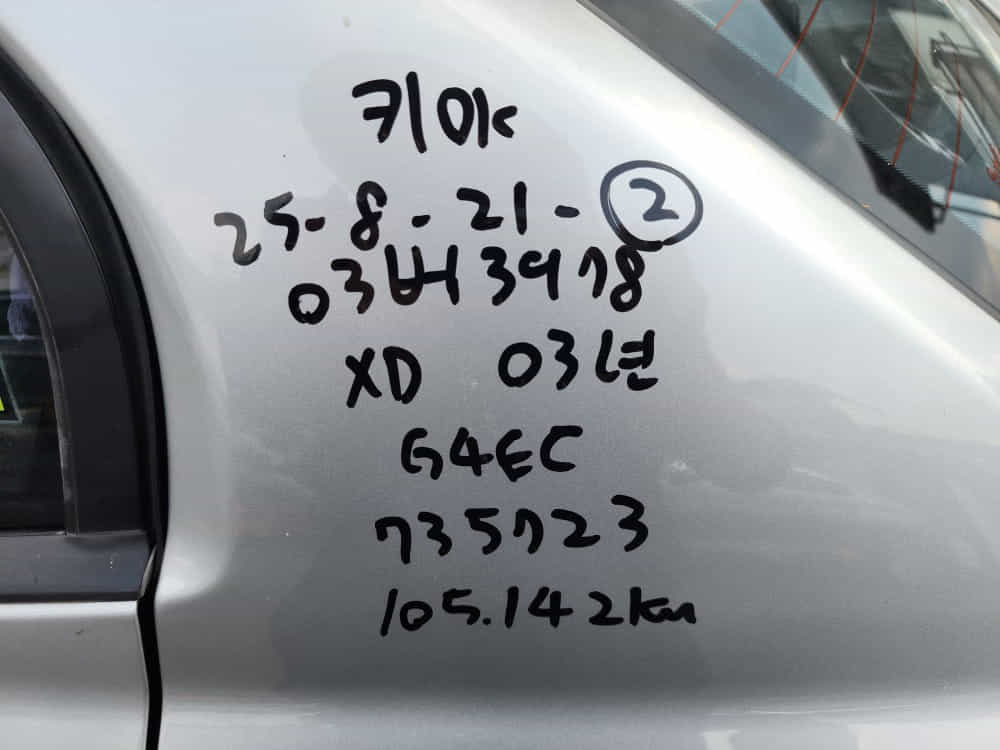 키 OK
25-8-21-②
03버3978
XD 03년
G4EC
735723
105.142km